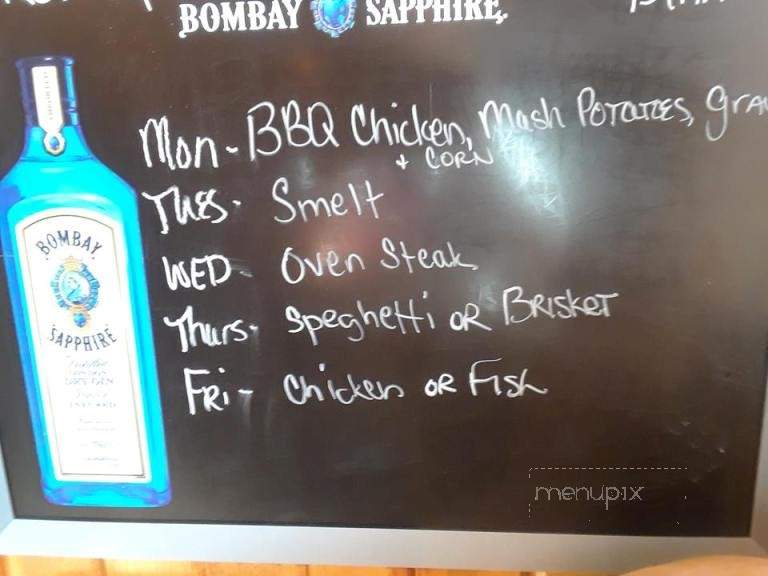 BOMBAY SAPPHIRE.
Mon - BBQ Chicken, Mash Potatoes, gra
+ CORN
Tues - Smelt
WED - Oven Steak
Thurs - Speghetti OR Brisket
Fri - Chicken OR Fish
BOMBAY
SAPPHIRE
menupix